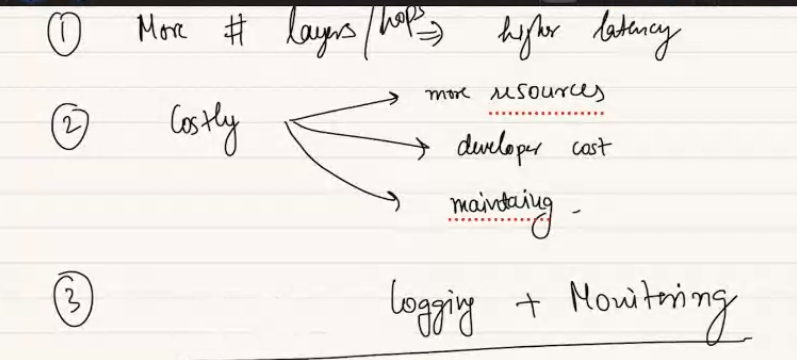 ① More # layers/hops ⇒ higher latency
② Costly → more resources
→ developer cost
→ maintaing -
③ Logging + Monitoring